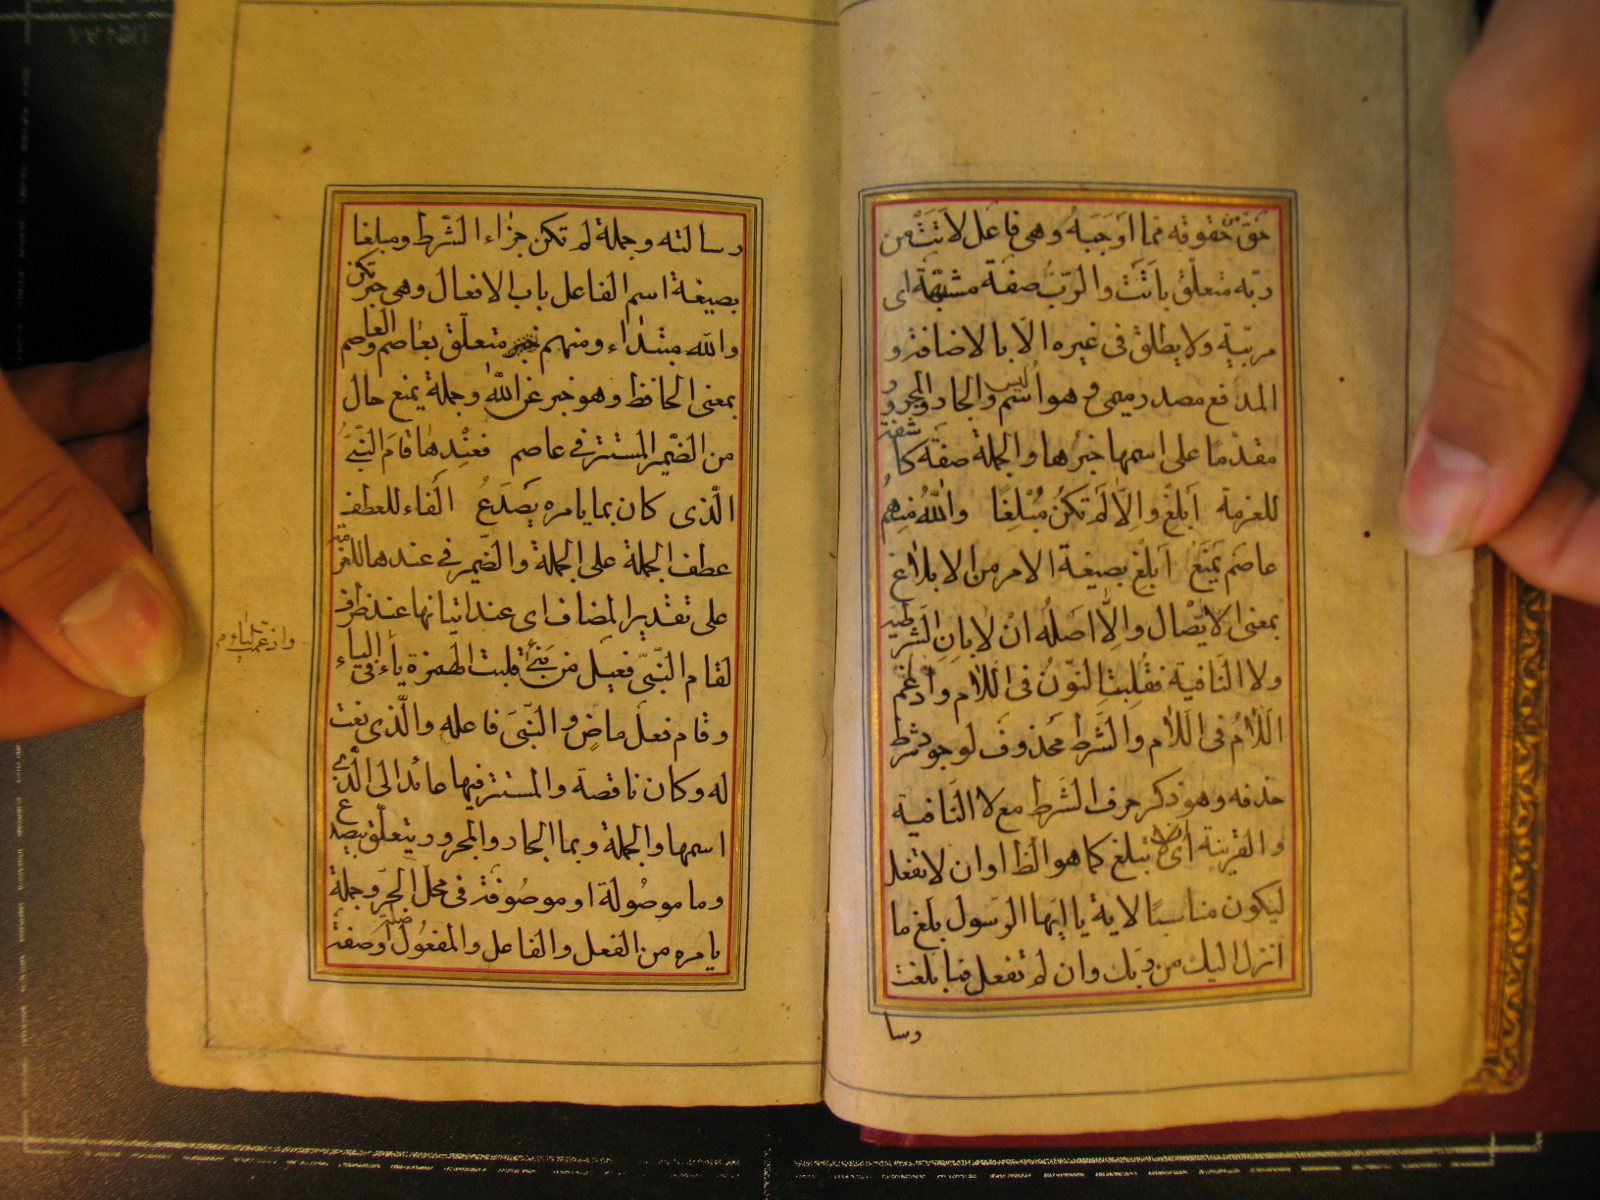 حق من حقوقه مما اوجبه وهى فاعل لاتثت من
ربه متعلق باتت والرب صفة مشبهة اى
مربية ولا يطلق فى غيره الا بالاضافة و
المدفع مصدر ميمى وهو اسم ليس والجار والمجرور
مقدما على اسمها خبرها والجملة صفة كاشفة
للغرمة ابلغ والا لم تكن مبلغا والله منهم
عاصم يمنع ابلغ بصيغة الامر من الابلاغ
بمعنى الاتصال والا اصله ان لا بان الشرطية
ولا النافية فقلبت النون فى اللام وادغم
اللام فى اللام والشرط محذوف لوجود شرط
حذفه وهو ذكر حرف الشرط مع لا النافية
والقرينة اى ان لا تبلغ كما هو الظ او ان لا تفعل
ليكون مناسبا لاية يا ايها الرسول بلغ ما
انزل اليك من ربك وان لم تفعل فما بلغت
رسا
رسالته وجملة لم تكن جزاء الشرط ومبلغا
بصيغة اسم الفاعل باب الافعال وهى خبر تكن
والله مبتداء ومنهم متعلق بعاصم والعاصم
بمعنى الحافظ وهو خبر عن الله وجملة يمنع حال
من الضمير المستتر فى عاصم فعندها قام النبى
الذى كان بما يامره يصدع الفاء للعطف
عطف الجملة على الجملة والضمير فى عندها للغرمة
على تقدير المضاف اى عند اتيانها عند ظرف
لقام النبى فعيل من نبئ قلبت الهمزة ياء فى الياء
وادغمت الياء م
وقام فعل ماض والنبى فاعله والذى نعت
له وكان ناقصة والمستتر فيها عائد الى الذى
اسمها والجملة وبما الجار والمجرور يتعلق بيصدع
وما موصولة او موصوفة فى محل الجر وجملة
يامره من الفعل والفاعل والمفعول صلة او صفة